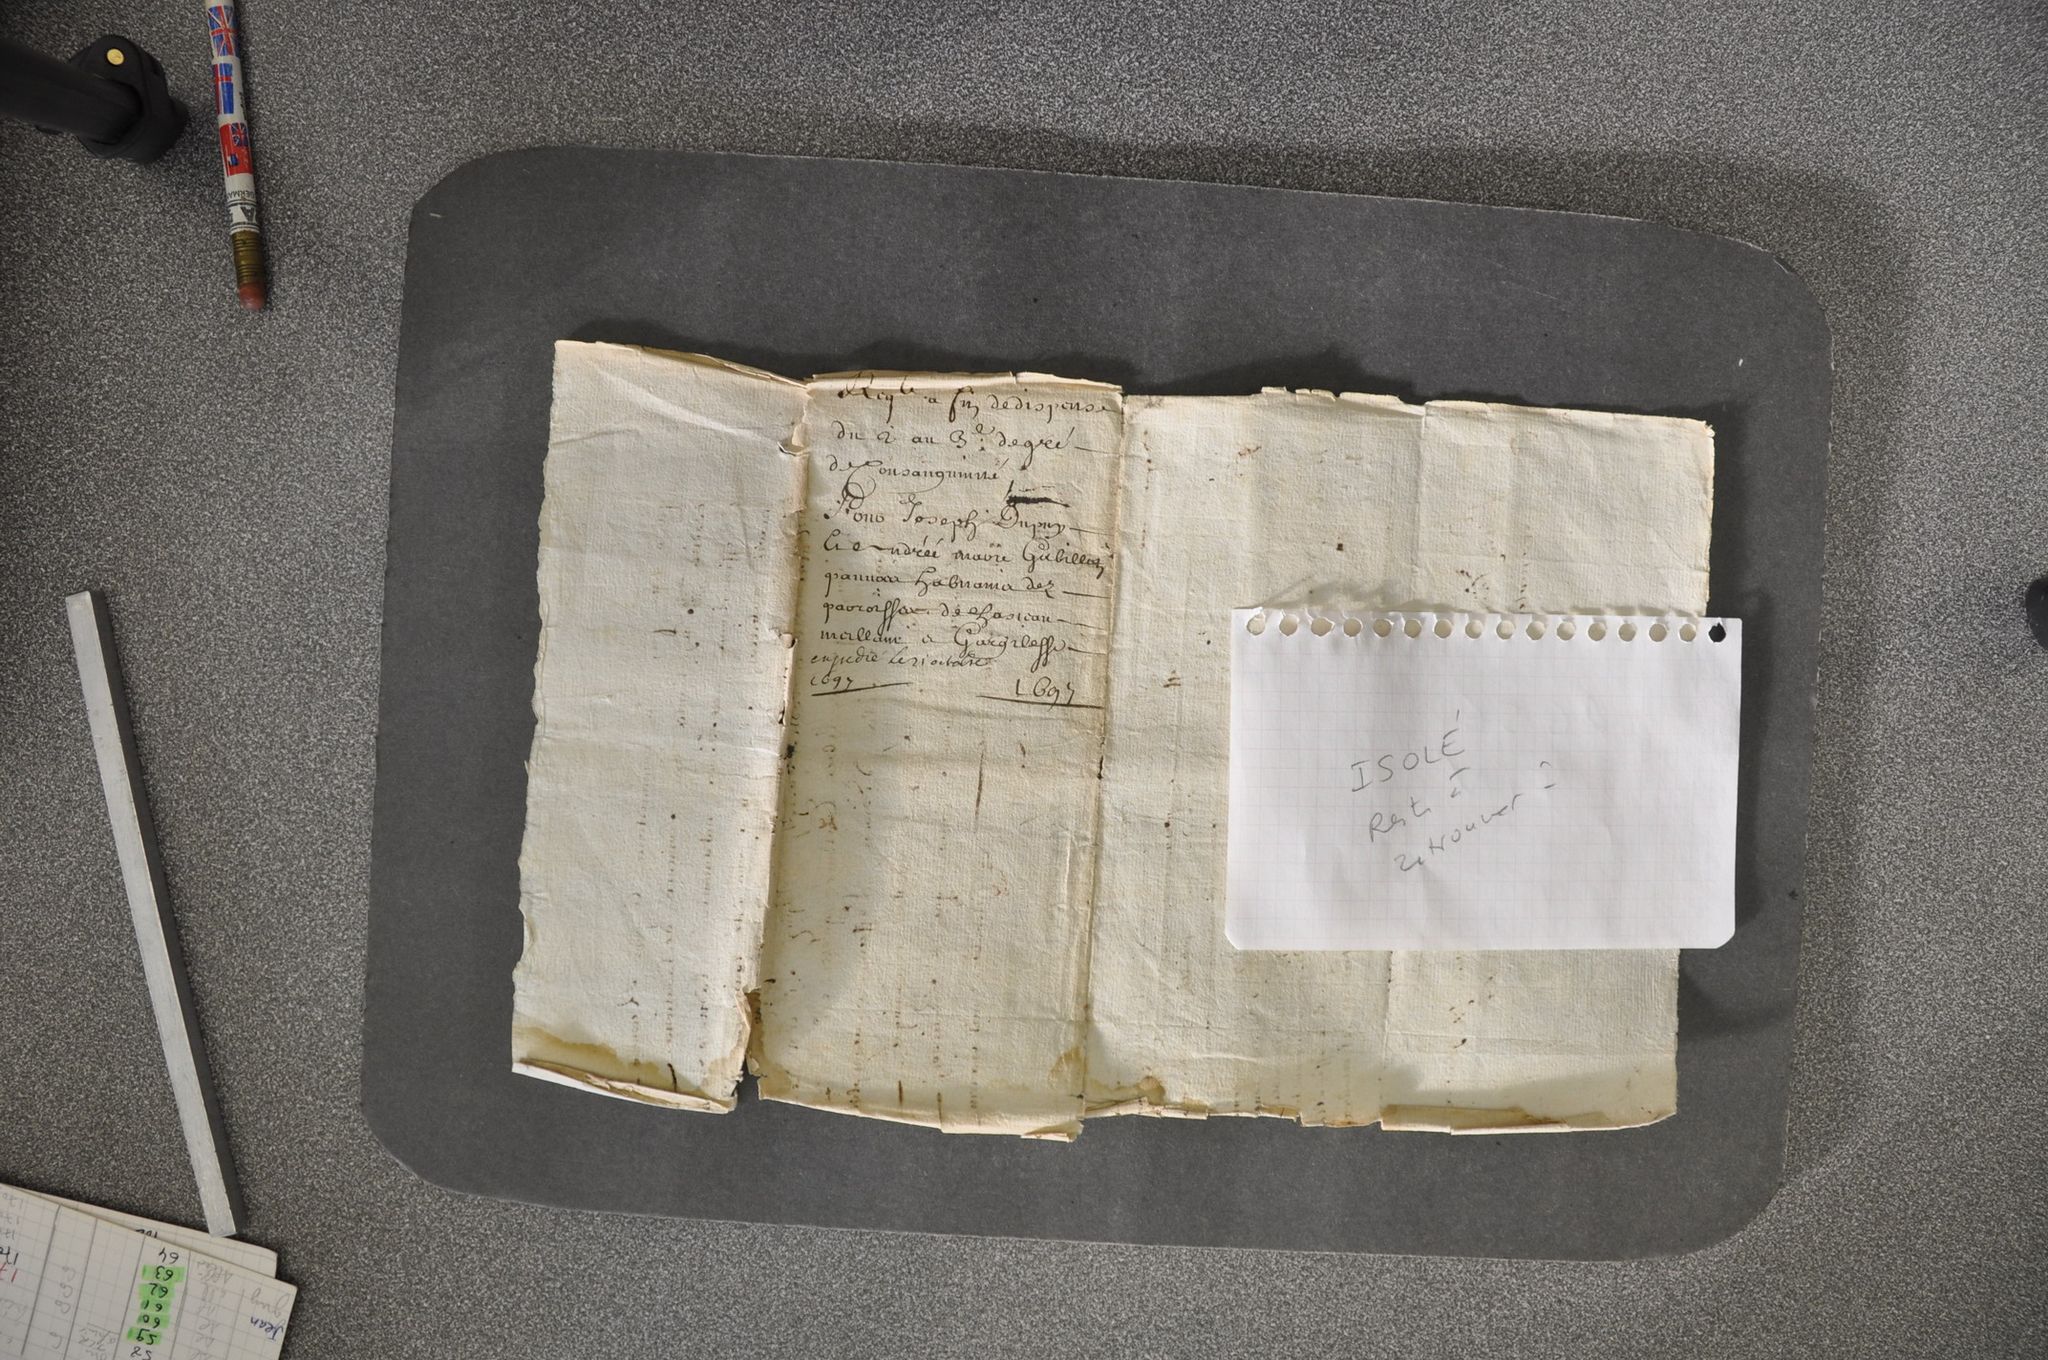 Reqte a fin de dispense
du 2 au 3e degré
de Consanguinité
Pour Joseph Dupuy
et andrée marie Gabillat
pauures habitants des
paroisses de chasteau
meillant & Gargilesse
expedié le 21 octobre
1697 1697
ISOLÉ
Reste à
retrouver ?
64
63
62
61
60
59
58
Jean